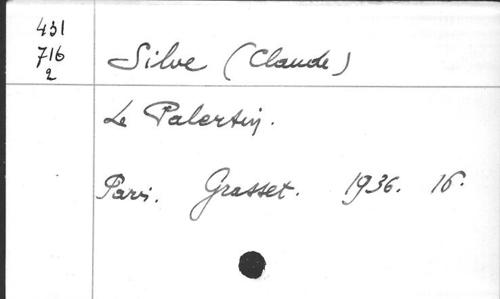 431
716
2
Silve (Claude)
Le Palertin.
Paris. Grasset. 1936. 16°.